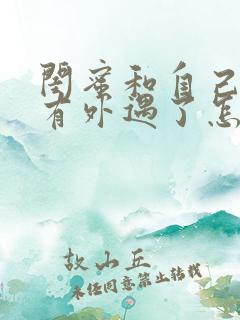 闺蜜和自己
有外遇了怎
故山丘
未经同意禁止转载